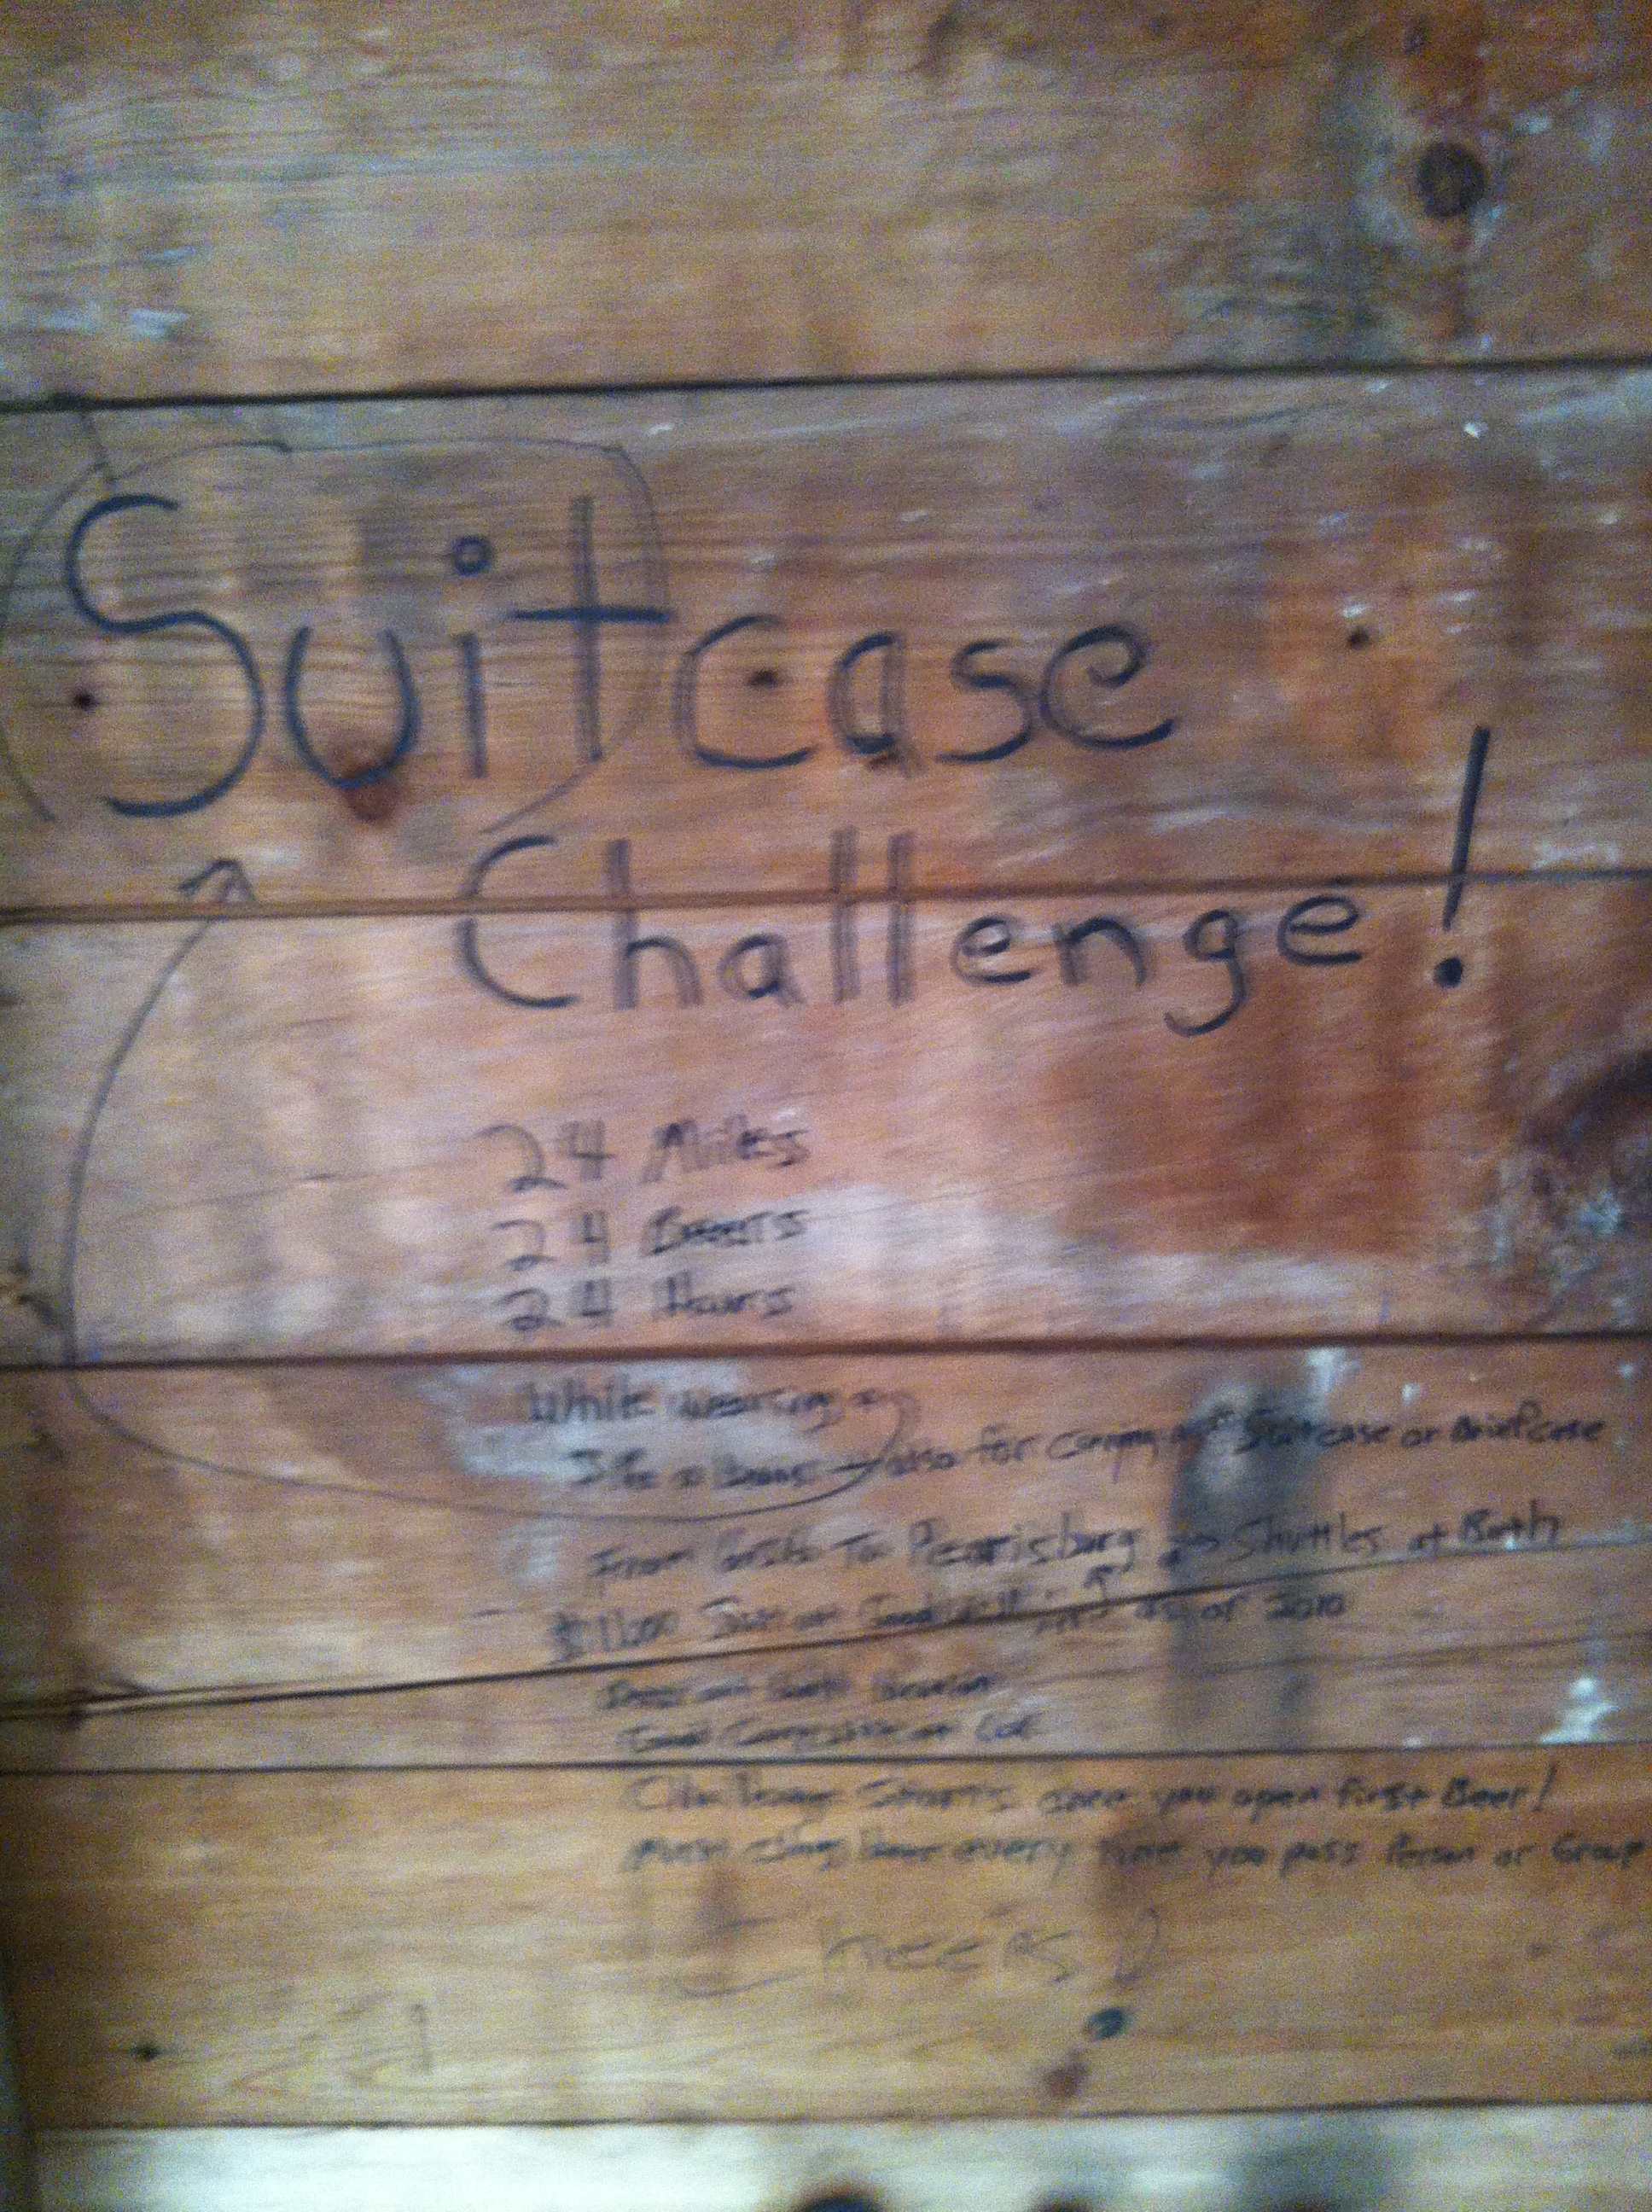 Suitcase
Challenge!
24 Miles
24 Beers
24 Hours
While wearing a
also for carrying a Suitcase or Briefcase
From to Pearisburg Shuttles at Both
Suit at as of 2010
at
at
Challenge Starts once you open first Beer!
Must Beer every time you pass Person or Group
Cheers!